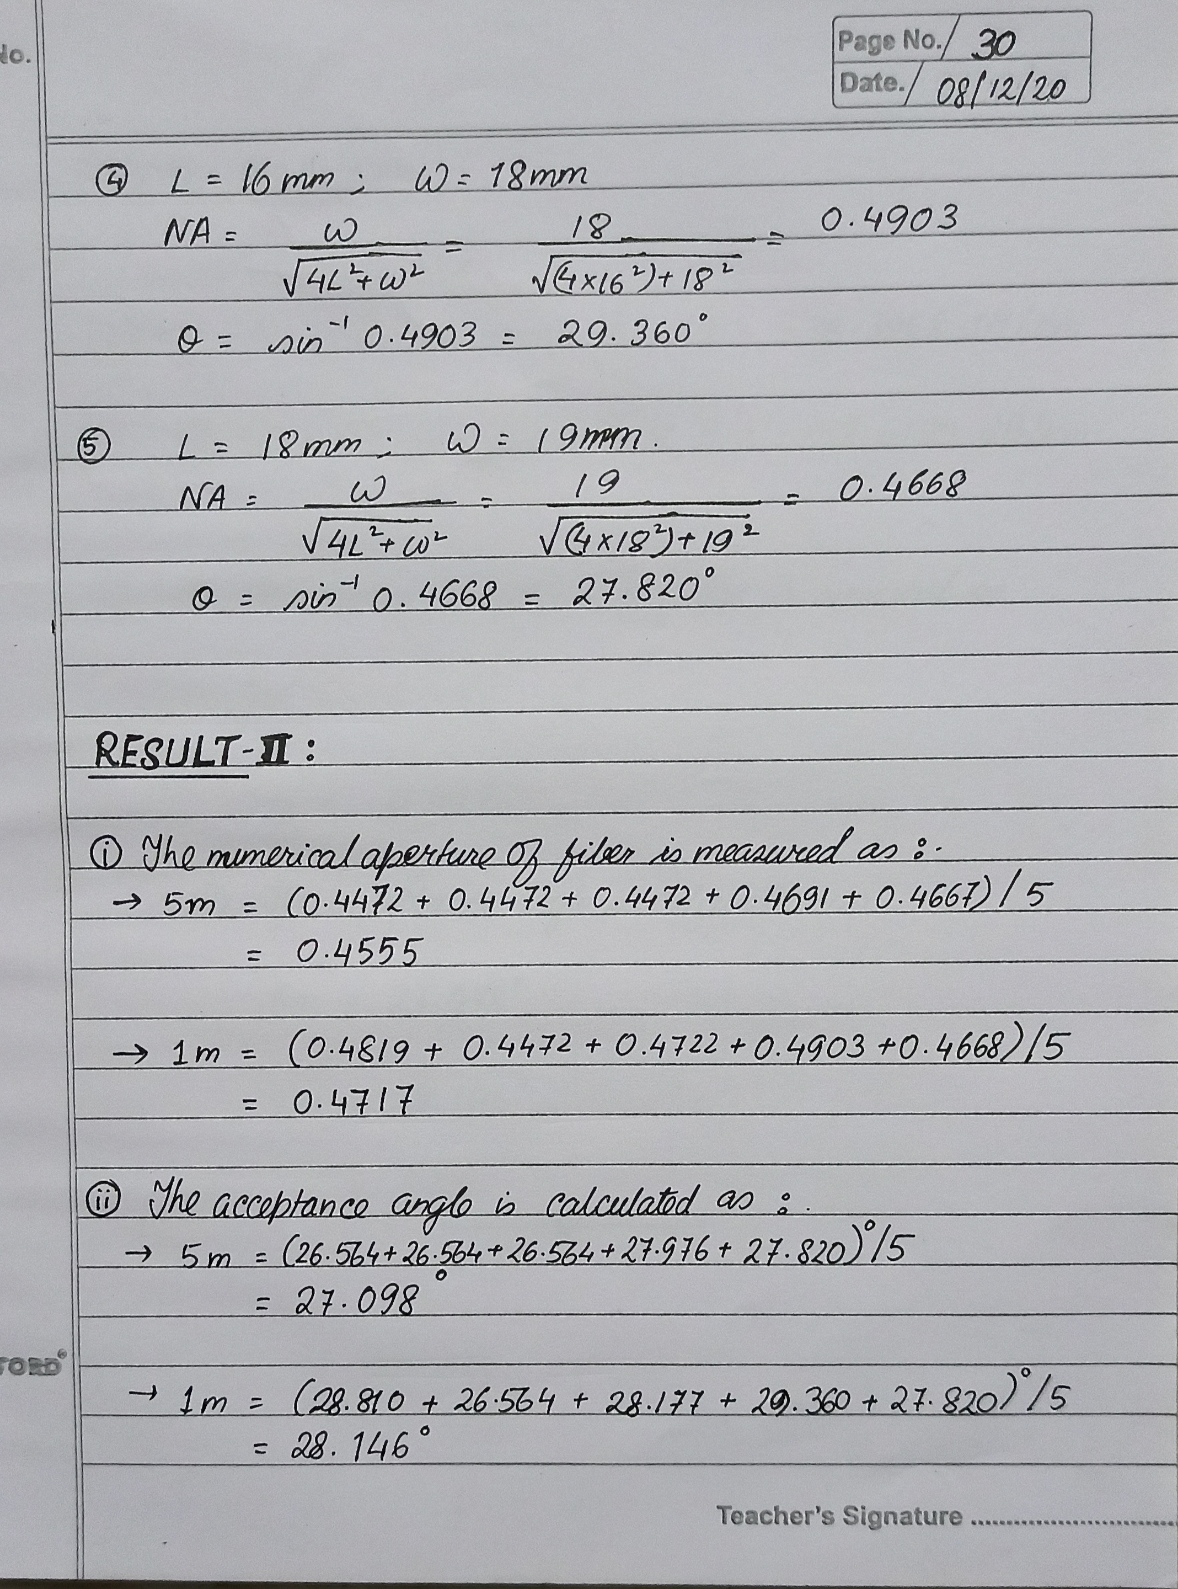 No.
Page No. 30
Date. 08/12/20
④ L = 16 mm ; W = 18mm
NA = W / √4L²+W² = 18 / √(4×16²)+18² = 0.4903
θ = sin⁻¹ 0.4903 = 29.360°
⑤ L = 18mm ; W = 19mm.
NA = W / √4L²+W² = 19 / √(4×18²)+19² = 0.4668
θ = sin⁻¹ 0.4668 = 27.820°
RESULT-II :
ⓘ The numerical aperture of fiber is measured as :-
→ 5m = (0.4472 + 0.4472 + 0.4472 + 0.4691 + 0.4667) / 5
= 0.4555
→ 1m = (0.4819 + 0.4472 + 0.4722 + 0.4903 + 0.4668)/5
= 0.4717
ⓘⓘ The acceptance angle is calculated as :
→ 5m = (26.564+26.564+26.564+27.976+ 27.820)°/5
= 27.098°
→ 1m = (28.810 + 26.564 + 28.177 + 29.360 + 27.820)°/5
= 28.146°
Teacher's Signature ..............................